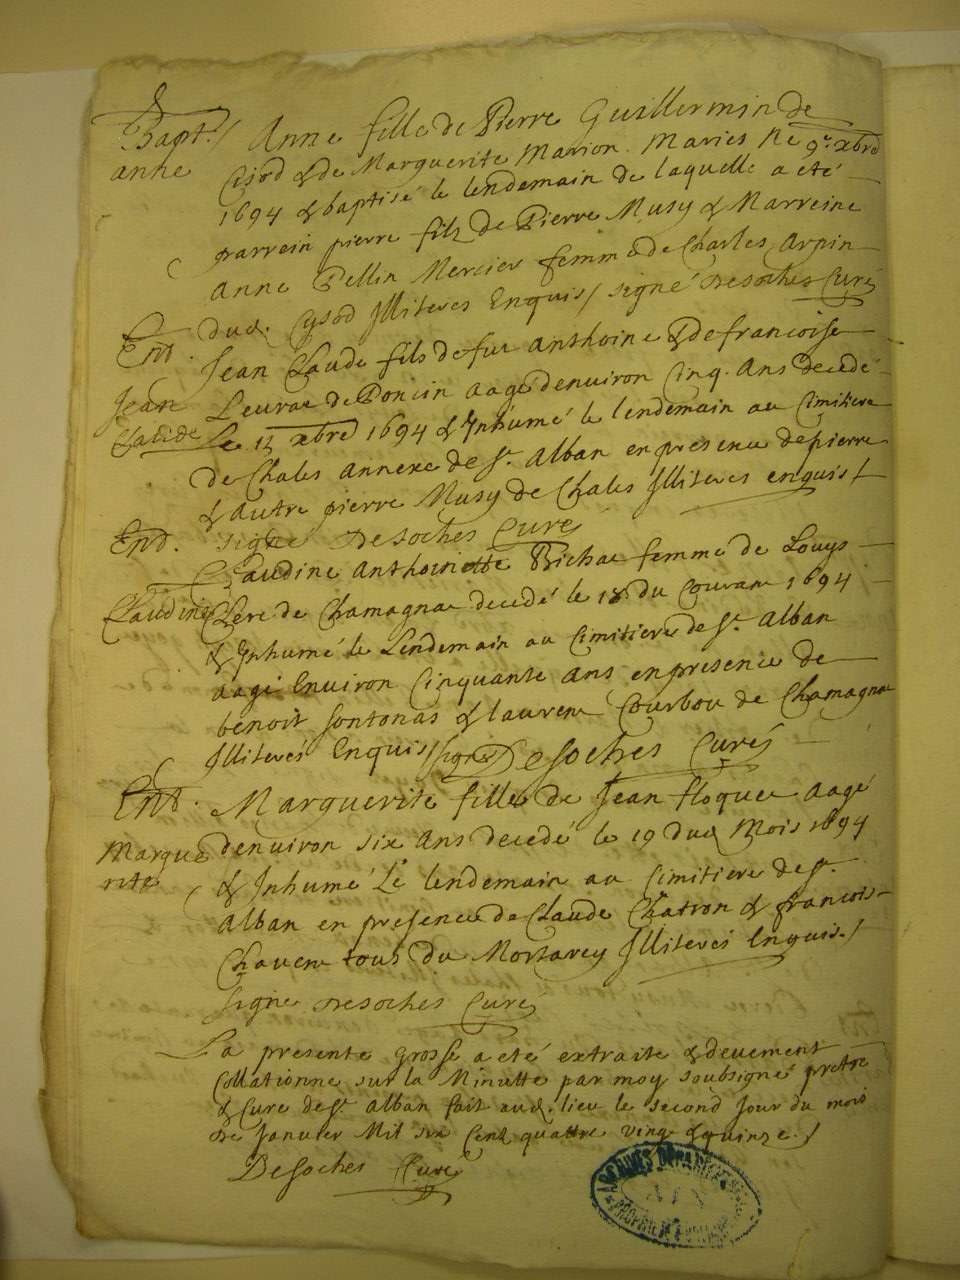 Bapt. / Anne fille de Pierre Guillermin de
anne Cysod & de Marguerite Marion Maries Ne 9e xbre
1694 & baptisé le lendemain de laquelle a eté
parrein pierre fils de Pierre Musy & Marreine
Anne Pellin Mercier femme de Charles Arpin
dud. Cysod Illiteres Enquis / signé Desoches Curé
Ent. Jean Claude fils de fur Anthoine & de francoise
Jean de Poncin aagé denuiron Cinq. Ans decedé
Claude Le 11 xbre 1694 & Inhumé le lendemain au Cimitiere
de Chales Annexe de St. Alban en presence de pierre
& autre pierre Musy de Chales Illiteres enquis /
signe Desoches Curé
End. Claudine Anthoinette femme de Louys
Claudine Clere de Chamagnat decedé le 18 du Courant 1694
& Inhumé le Lendemain au Cimitiere de St. Alban
aagé Enuiron Cinquante Ans en presence de
benoit fontanas & laurent Courbou de Chamagnat
Illiteres Enquis / signé Desoches Curé
Ent. Marguerite fille de Jean floquet aagé
Margue denuiron six Ans decedé le 19 dud Mois 1694
rite & Inhumé Le lendemain au Cimitiere de St.
Alban en presence de Claude Chatron & francois
Chauent tous du Mortarey Illiteres Enquis. /
Signe Desoches Curé
La presente Grosse a eté extraite & deuement
Collationne sur la Minutte par moy soubsigné pretre
& Cure de St. Alban fait aud. lieu le second Jour du mois
de Januier Mil six Cent quattre vingt & quinze. /
Desoches Curé
ARCHIVES